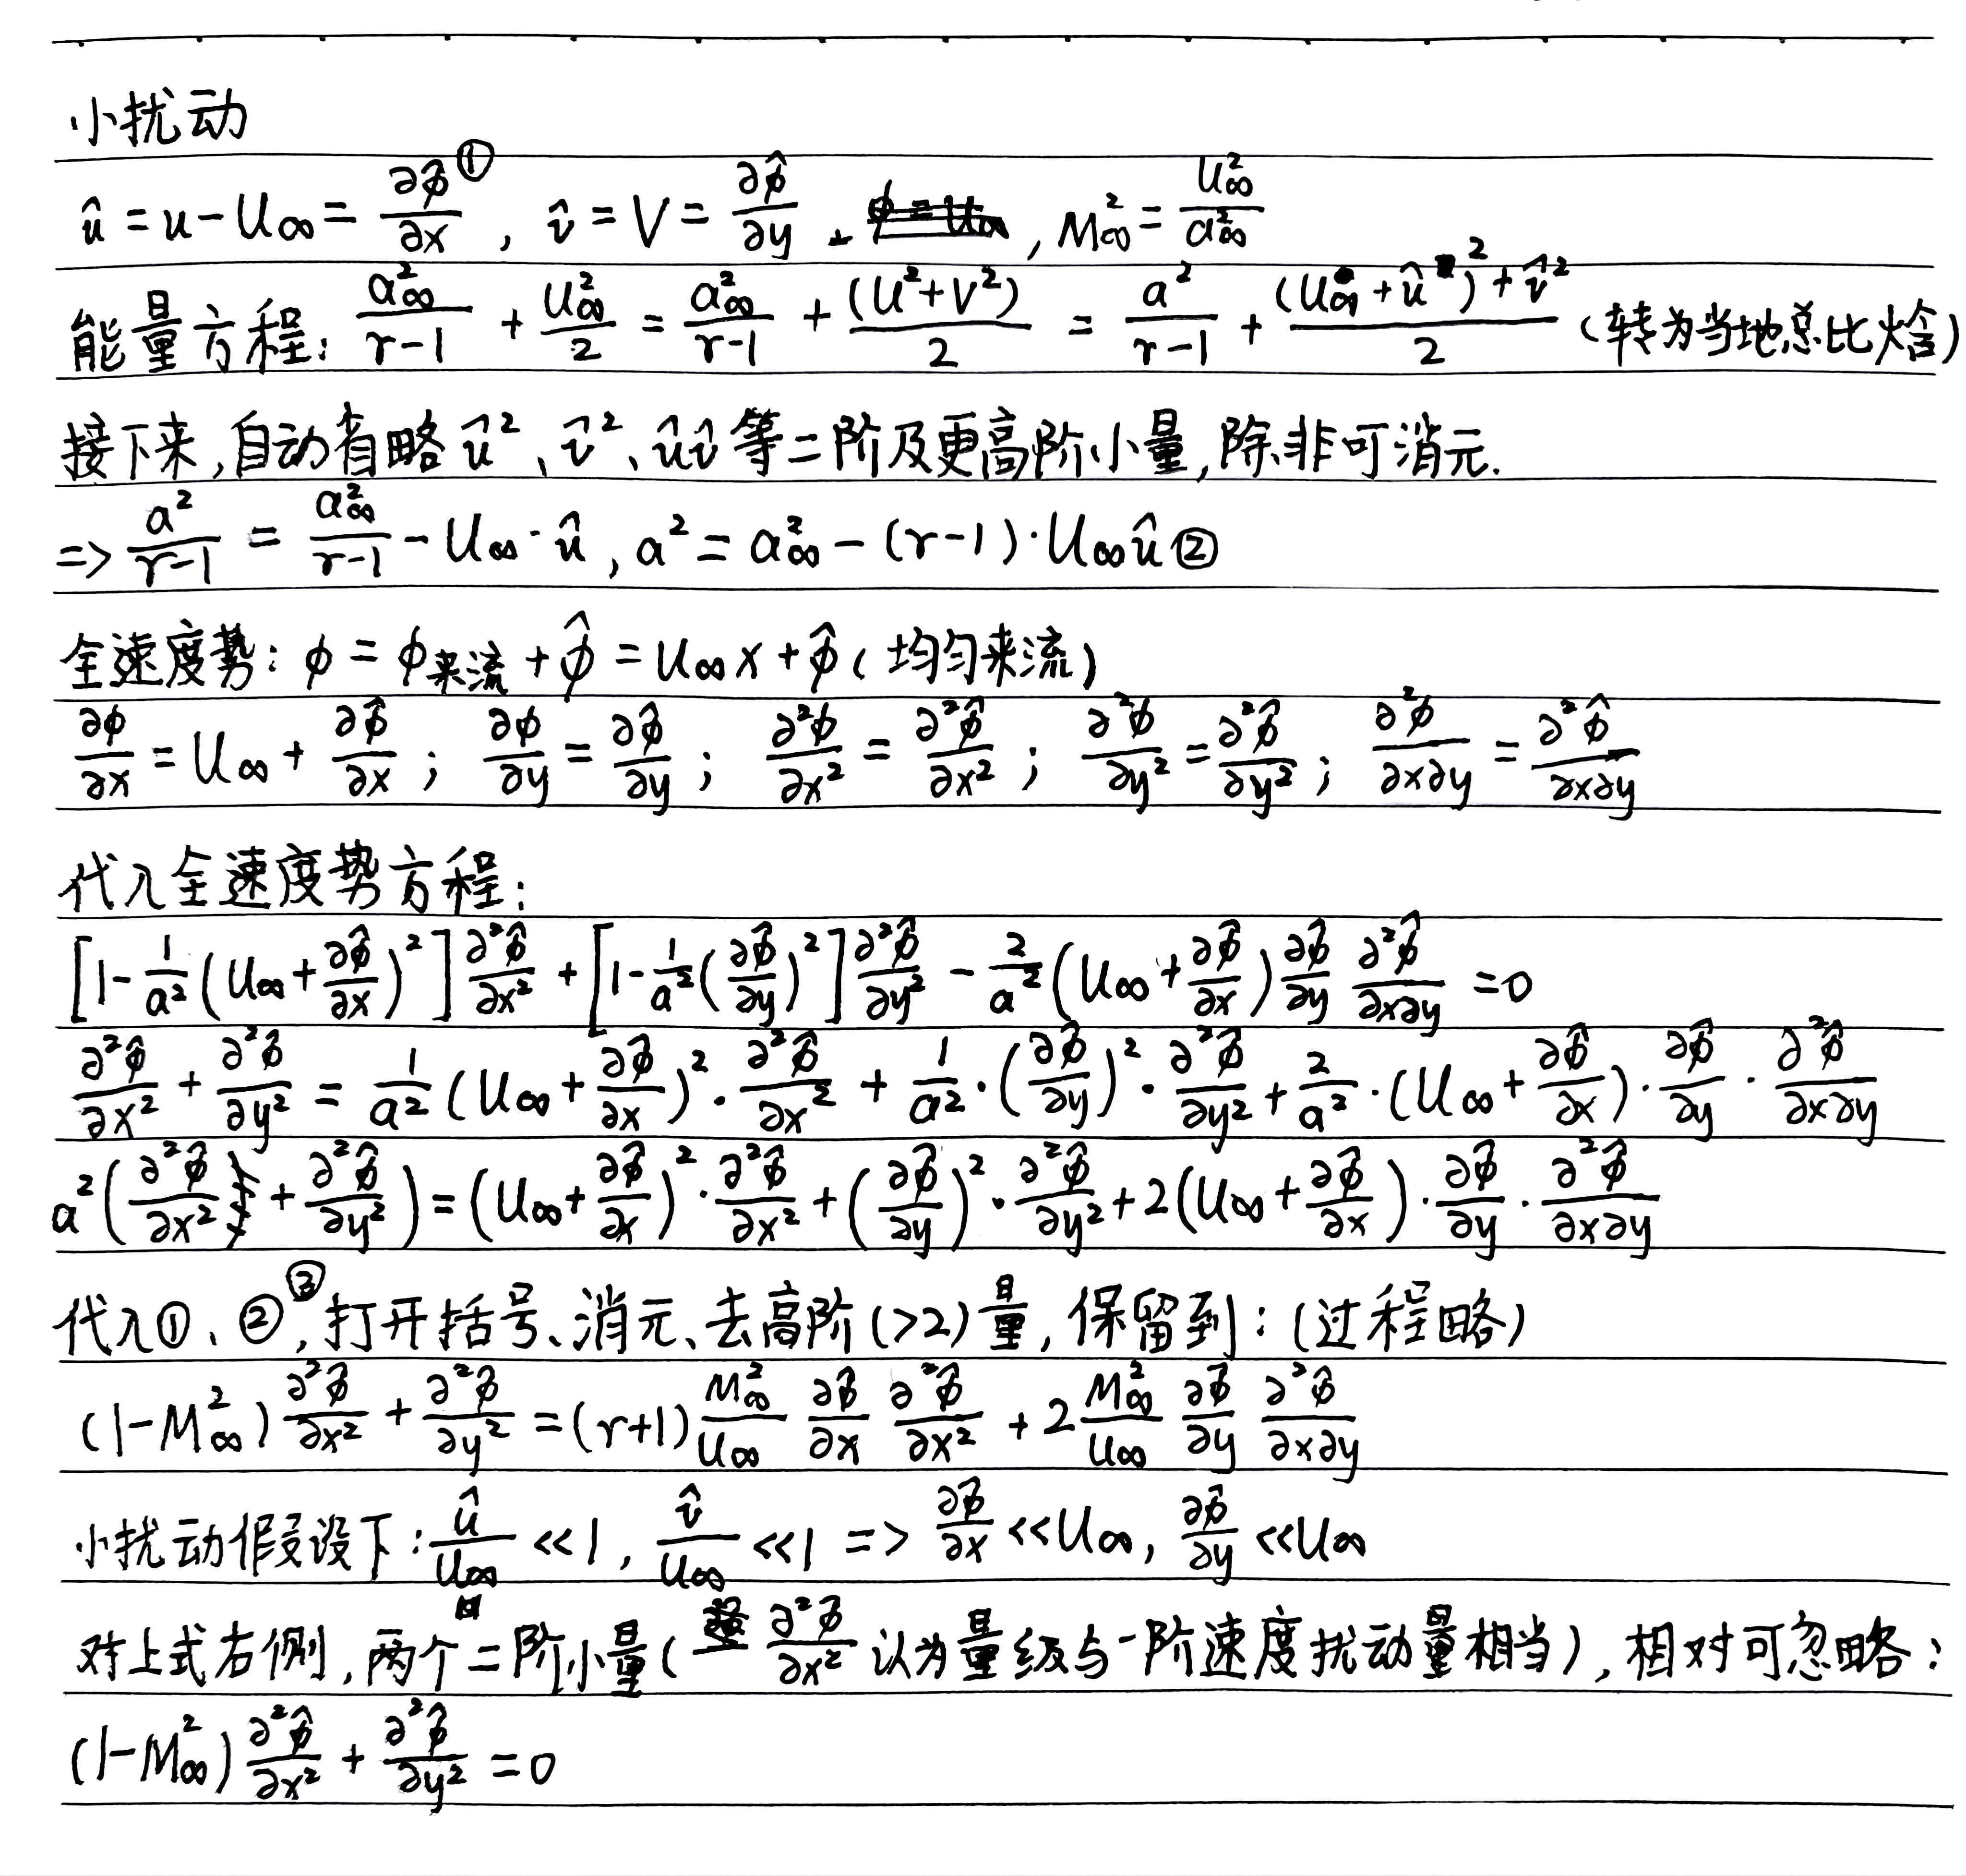 小扰动
û = u - U∞ = ∂φ̂/∂x ①, v̂ = V = ∂φ̂/∂y , M∞² = U∞²/a∞²
能量方程: a∞²/(γ-1) + U∞²/2 = a∞²/(γ-1) + (U²+V²)/2 = a²/(γ-1) + ((U∞+û)²+v̂²)/2 (转为当地总比焓)
接下来,自动省略 û²、v̂²、ûv̂ 等二阶及更高阶小量,除非可消元.
=> a²/(γ-1) = a∞²/(γ-1) - U∞·û , a² = a∞² - (γ-1)·U∞û ②
全速度势: φ = φ来流 + φ̂ = U∞x + φ̂ ( 均匀来流)
∂φ/∂x = U∞ + ∂φ̂/∂x ; ∂φ/∂y = ∂φ̂/∂y ; ∂²φ/∂x² = ∂²φ̂/∂x² ; ∂²φ/∂y² = ∂²φ̂/∂y² ; ∂²φ/∂x∂y = ∂²φ̂/∂x∂y
代入全速度势方程:
[1 - 1/a² (U∞ + ∂φ̂/∂x)²] ∂²φ̂/∂x² + [1 - 1/a² (∂φ̂/∂y)²] ∂²φ̂/∂y² - 2/a² (U∞ + ∂φ̂/∂x) ∂φ̂/∂y ∂²φ̂/∂x∂y = 0
∂²φ̂/∂x² + ∂²φ̂/∂y² = 1/a² (U∞ + ∂φ̂/∂x)² · ∂²φ̂/∂x² + 1/a² · (∂φ̂/∂y)² · ∂²φ̂/∂y² + 2/a² · (U∞ + ∂φ̂/∂x) · ∂φ̂/∂y · ∂²φ̂/∂x∂y
a² (∂²φ̂/∂x² + ∂²φ̂/∂y²) = (U∞ + ∂φ̂/∂x)² · ∂²φ̂/∂x² + (∂φ̂/∂y)² · ∂²φ̂/∂y² + 2(U∞ + ∂φ̂/∂x) · ∂φ̂/∂y · ∂²φ̂/∂x∂y
代入①、②③,打开括号、消元、去高阶(>2)量,保留到: (过程略)
(1-M∞²) ∂²φ̂/∂x² + ∂²φ̂/∂y² = (γ+1) M∞²/U∞ ∂φ̂/∂x ∂²φ̂/∂x² + 2 M∞²/U∞ ∂φ̂/∂y ∂²φ̂/∂x∂y
小扰动假设下: û/U∞ <<1, v̂/U∞ <<1 => ∂φ̂/∂x <<U∞, ∂φ̂/∂y <<U∞
对上式右侧,两个二阶小量( ∂²φ̂/∂x² 认为量级与一阶速度扰动量相当),相对可忽略:
(1-M∞²) ∂²φ̂/∂x² + ∂²φ̂/∂y² = 0